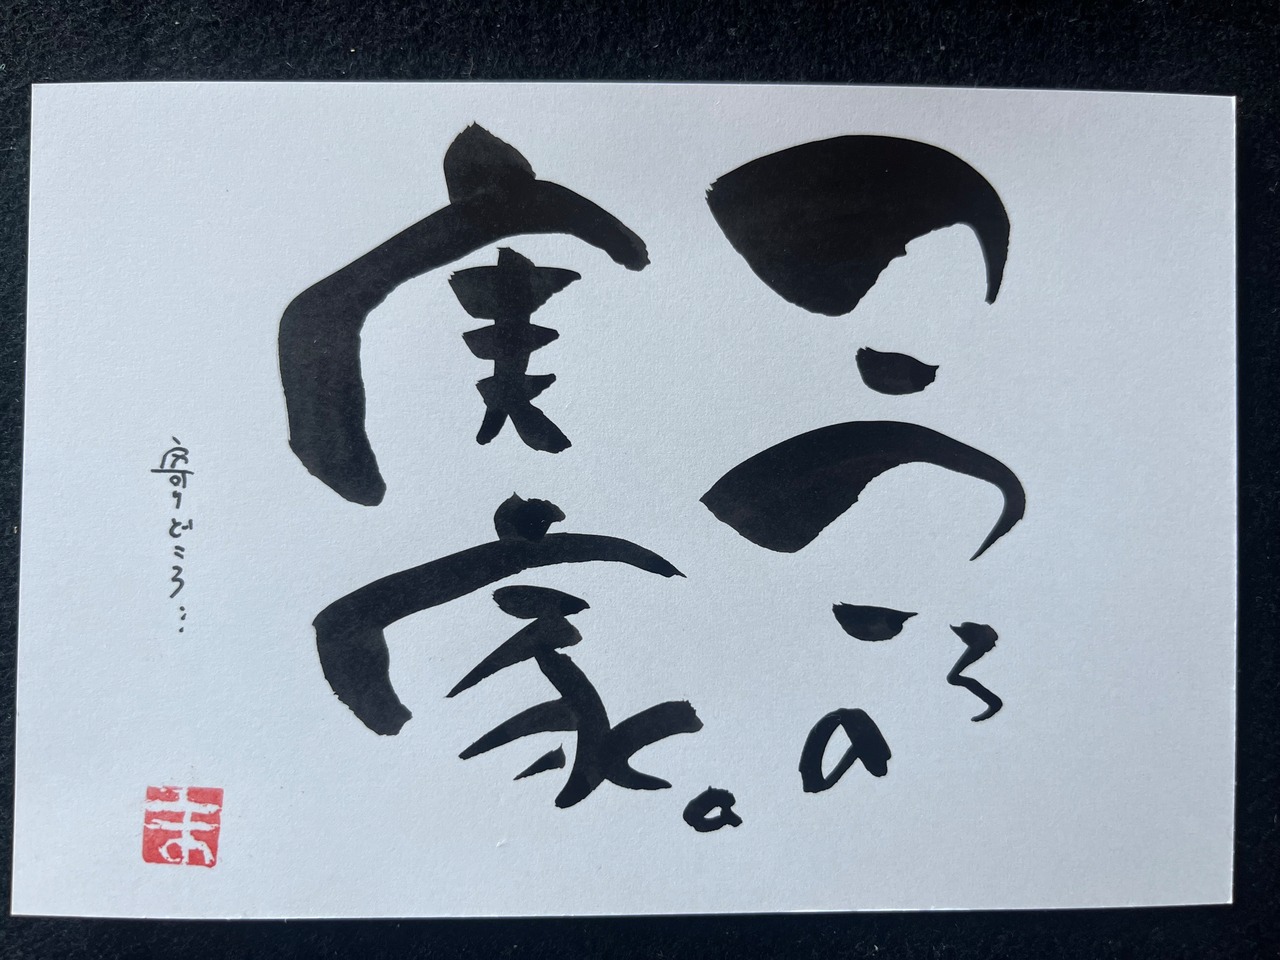 こころの
実家。
寄りどころ…